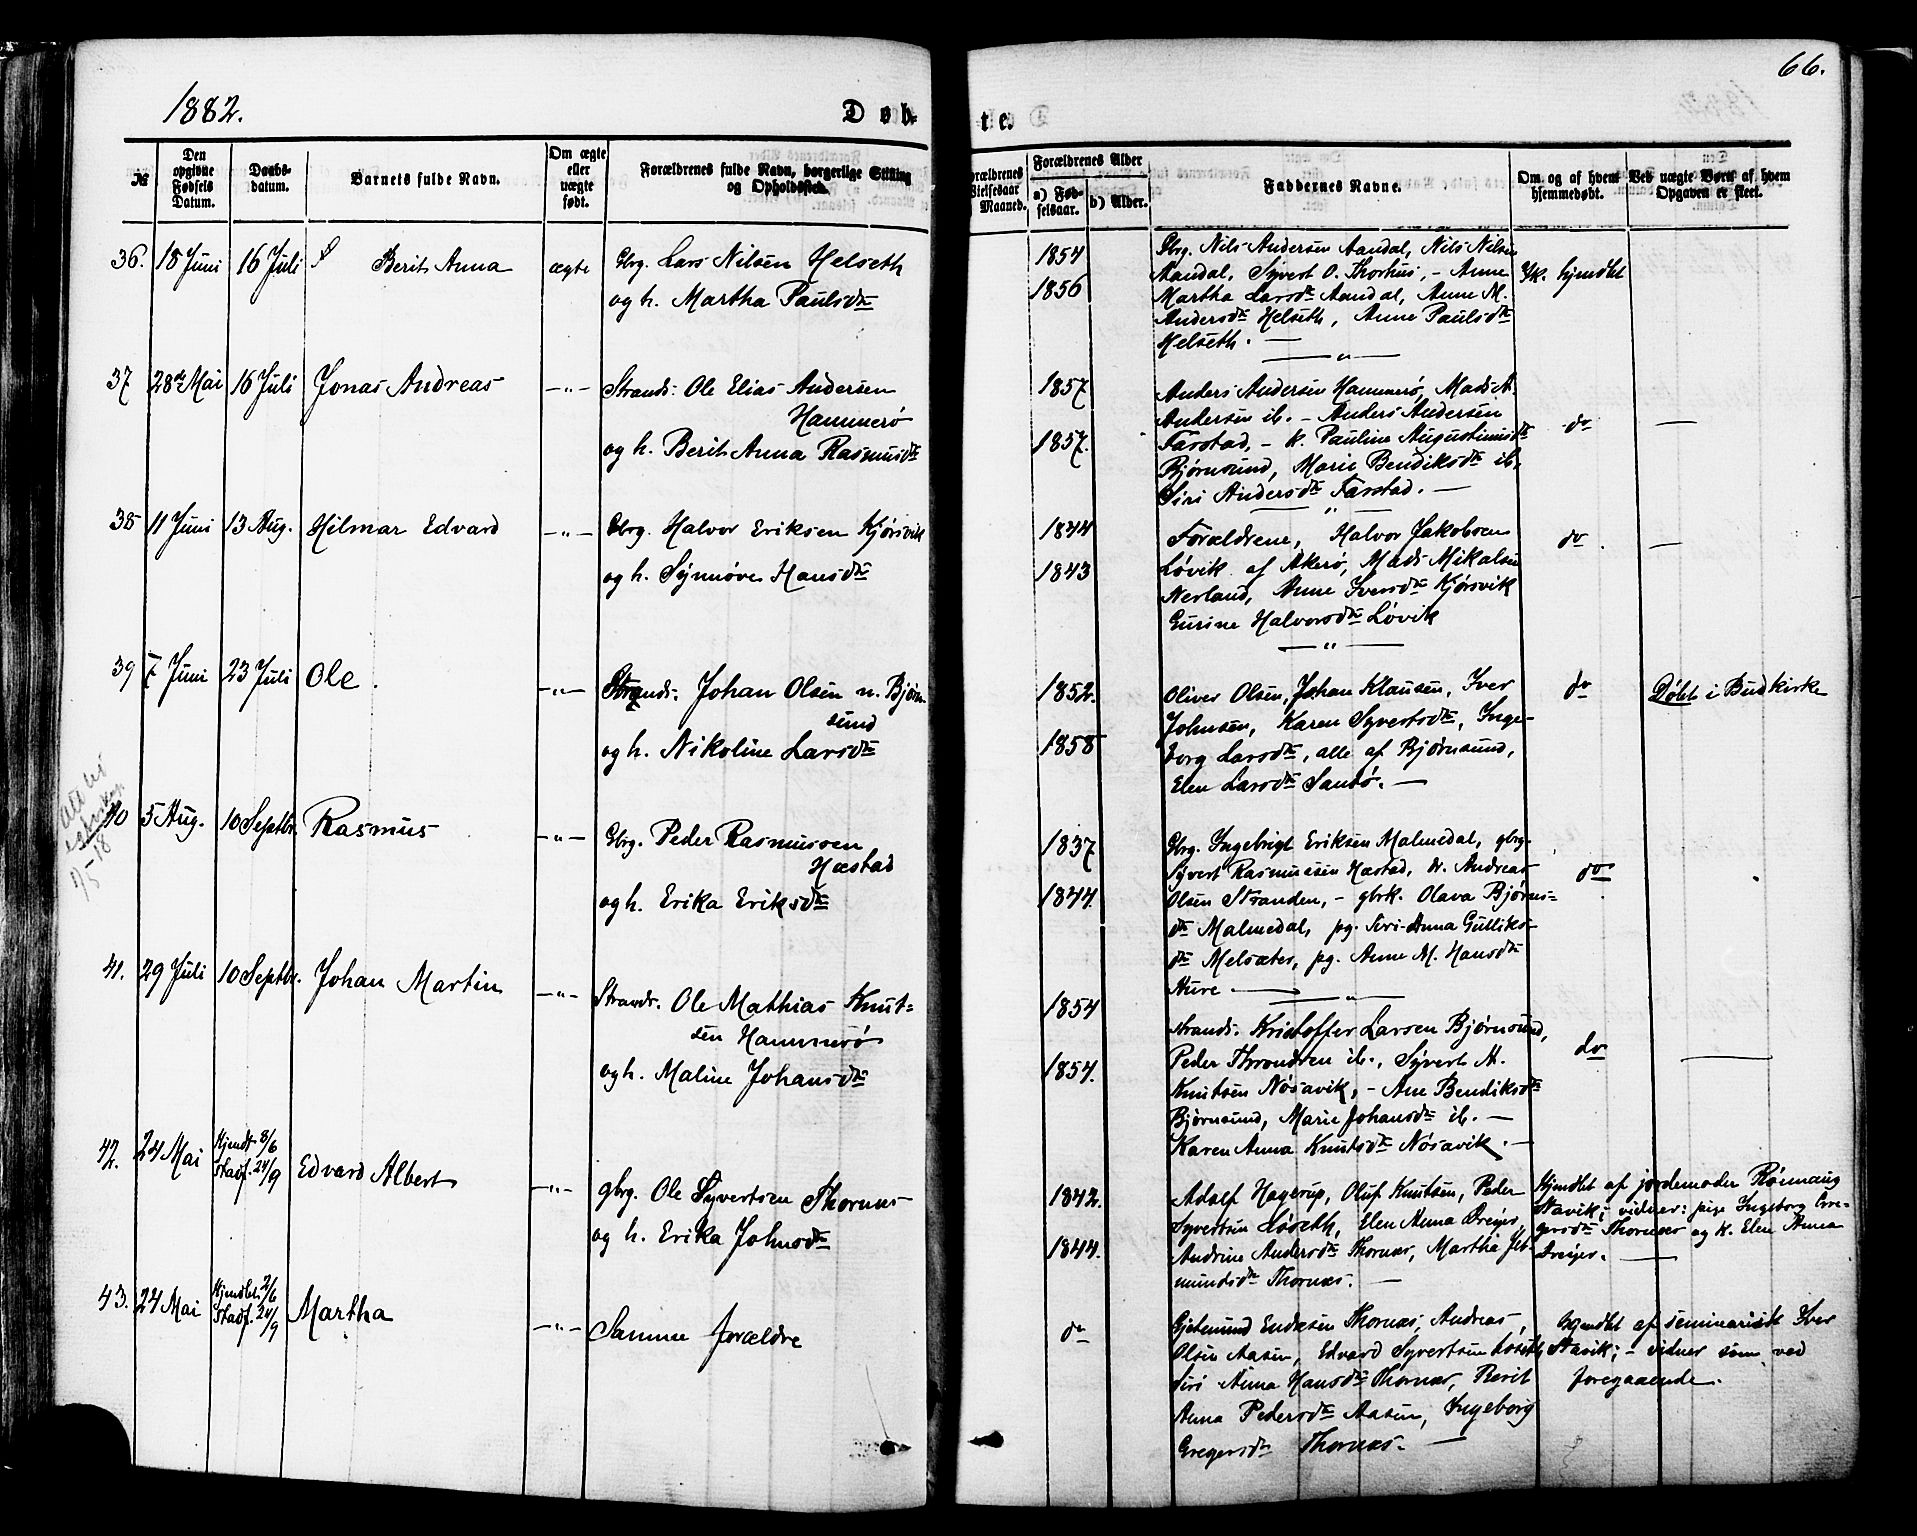 1882.
66.
Døb-
te.
№
Den opgivne Fødsels Datum.
Daabs-datum.
Barnets fulde Navn.
Om ægte eller uægte født.
Forældrenes fulde Navn, borgerlige Stilling og Opholdssted.
Forældrenes Vielsesaar Maaned.
Forældrenes Alder
a) Fødselsaar.
b) Alder.
Faddernes Navne.
Om og af hvem hjemmedøbt.
Ved uægte Børn af hvem Opgaven er skeet.
36. 18 Juni 16 Juli Berit Anna ægte Gbrg. Lars Nilsen Helseth
og h. Martha Paulsdtr
1854
1856
Gbrg. Nils Andersen Aandal, Nils Nilsen
Aandal, Syvert O. Thorhus, - Anne
Martha Larsdtr Aandal, Anne M.
Andersdtr Helseth, Anne Paulsdtr
Helseth. —
hjemdbt
37 28de Mai 16 Juli Jonas Andreas —"— Strands. Ole Elias Andersen
Hammerø
og h. Berit Anna Rasmusdtr
1857
1857.
Anders Andersen Hammerø, Mads A.
Andersen ib. - Anders Andersen
Farstad, - k. Pauline Augustinusdtr
Bjørnsund, Marie Bendiksdtr ib.
Siri Andersdtr Farstad. —
do —
38 11 Juni 13 Aug. Hilmar Edvard —"— Gbrg. Halvor Eriksen Kjørsvik
og h. Synnøve Hansdtr
1844
1843
Forældrene, Halvor Jakobsen
Løvik af Akerø, Mads Mikalsen
Nerland, Anne Iversdtr Kjørsvik
Gurine Halvorsdtr Løvik
do —
39 7 Juni 23 Juli Ole. —"— Strands. Johan Olsen n. Bjørn
sund
og h. Nikoline Larsdtr
1852.
1858
Oliver Olsen, Johan Klausen, Iver
Johnsen, Karen Syvertsdtr, Inge-
borg Larsdtr, alle af Bjørnsund,
Elen Larsdtr Sandø. —
do
Døbt i Budkirke
7/5-18
40 5 Aug. 10 Septbr. Rasmus —"— Gbrg. Peder Rasmussen
Hæstad
og h. Erika Eriksdtr
1837
1844.
Gbrg. Ingebrigt Eriksen Malmedal, gbrg.
Syvert Rasmussen Hæstad, Andreas
Olsen Stranden, - gbrk. Olava Bjørns-
dtr Malmedal, pg. Siri Anna Gulliks-
dtr Melsæter, pg. Anne M. Hansdtr
Hure —
do
41. 29 Juli 10 Septbr. Johan Martin —"— Strands. Ole Mathias Knut-
sen Hammerø
og h. Maline Johansdtr
1854
1854.
Strands. Kristoffer Larsen Bjørnsund,
Peder Throndsen ib., Syvert M.
Knutsen Nøsavik, - Ane Bendiksdtr
Bjørnsund, Marie Johansdtr ib. —
Karen Anna Knutsdtr Nøsavik. —
do —
42. 24 Mai Hjemdt 3/6
Stadf. 24/9 Edvard Albert —"— gbrg. Ole Syvertsen Thornæs
og h. Erika Johnsdtr
1842.
1844.
Adolf Hagerup, Oluf Knutsen, Peder
Syvertsen Løseth, Elen Anna Dreyer,
Andrine Andersdtr Thornæs, Martha Jet-
mundsdtr Thornæs. —
Hjemdbt af jordemoder
Stavik; vidner: pige Ingeborg Gre-
gersdtr Thornæs og k. Elen Anna
Dreyer. —
43. 24 Mai Hjemdbt. 2/6
Stadf. 24/9 Martha —"— Samme forældre
do
Gjetmund Endresen Thornæs, Andreas
Olsen Aasen, Edvard Syvertsen Løseth
Siri Anna Hansdtr Thornæs, Berit
Anna Pedersdtr Aasen, Ingeborg
Gregersdtr Thornæs. —
Hjemdbt af seminarist Iver
Stavik; - vidner som ved
foregaaende.